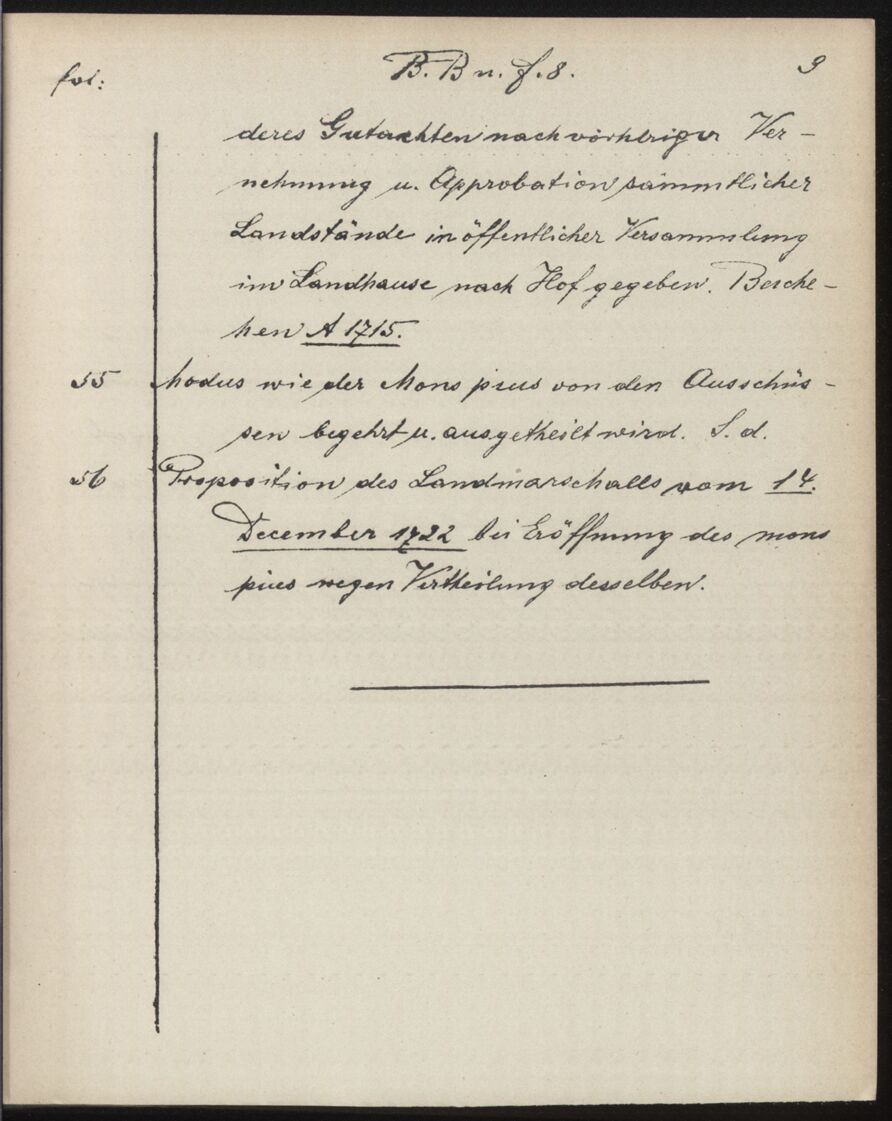 fol: B. B n. f. 8. 9
deres Gutachten nach vorheriger Ver-
nehmung u. Approbation sämmtlicher
Landstände in öffentlicher Versammlung
im Landhause nach Hof gegeben. Besche-
hen A 1715.
55 Modus wie der Mons pius von den Ausschüs-
sen begehrt u. ausgetheilt wird. S. d.
56 Proposition des Landmarschalls vom 14.
December 1722 bei Eröffnung des mons
pius wegen Vertheilung desselben.